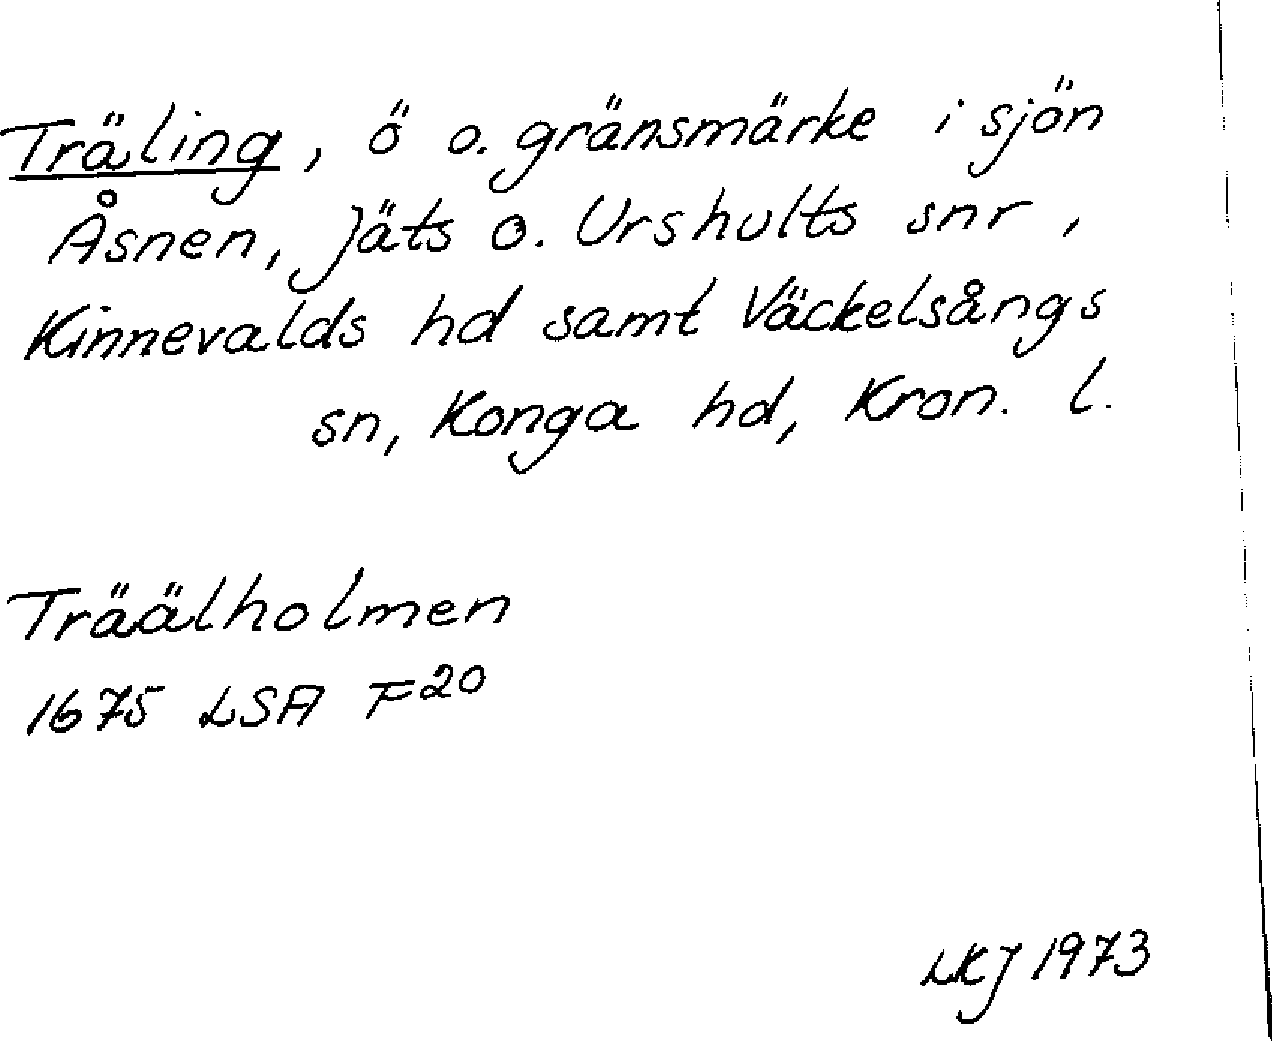 Träling, ö o. gränsmärke i sjön
Åsnen, Jäts o. Urshults snr,
Kinnevalds hd samt Väckelsångs
sn, Konga hd, Kron. l.
Träälholmen
1675 LSA F20
LKJ 1973